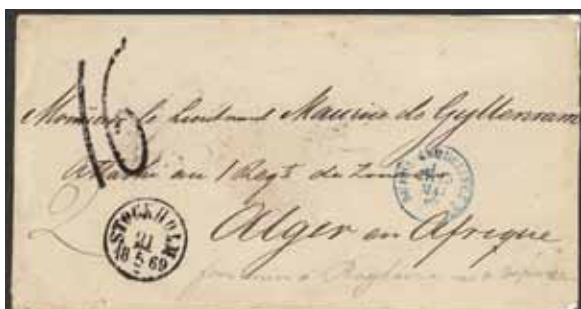 16
Monsieur le Lieutenant Maurice de Gyllenram
Attaché au 1 Regt de Zouaves
Alger en Afrique
STOCKHOLM
21
5
18 69
2